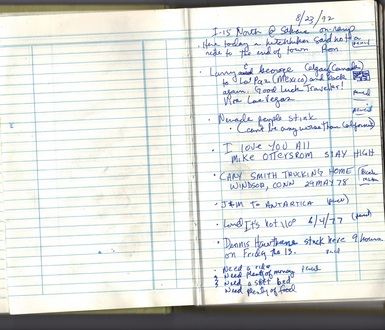 8/23/92
I-15 North @ Sahara on-ramp
Here today a hitchhiker said not a
ride to the end of town from
• Larry & George Calgary (Canada)
to La Paz (Mexico) and back
again. Good Luck Travelers!
Viva Las Vegas
• Nevada people stink
• (can't be any worse than California)
• I love You All
MIKE STAY HIGH
• GARY SMITH TRUCKING HOME
WINDSOR, CONN 29 MAY 78
• J&M TO ANTARTICA
• It's hot 110° 6/4/77
• Dennis Hawthorne stuck here 9 hours
on Friday the 13.
• Need a ride
2 Need plenty of money
3 Need a soft bed
Need plenty of food